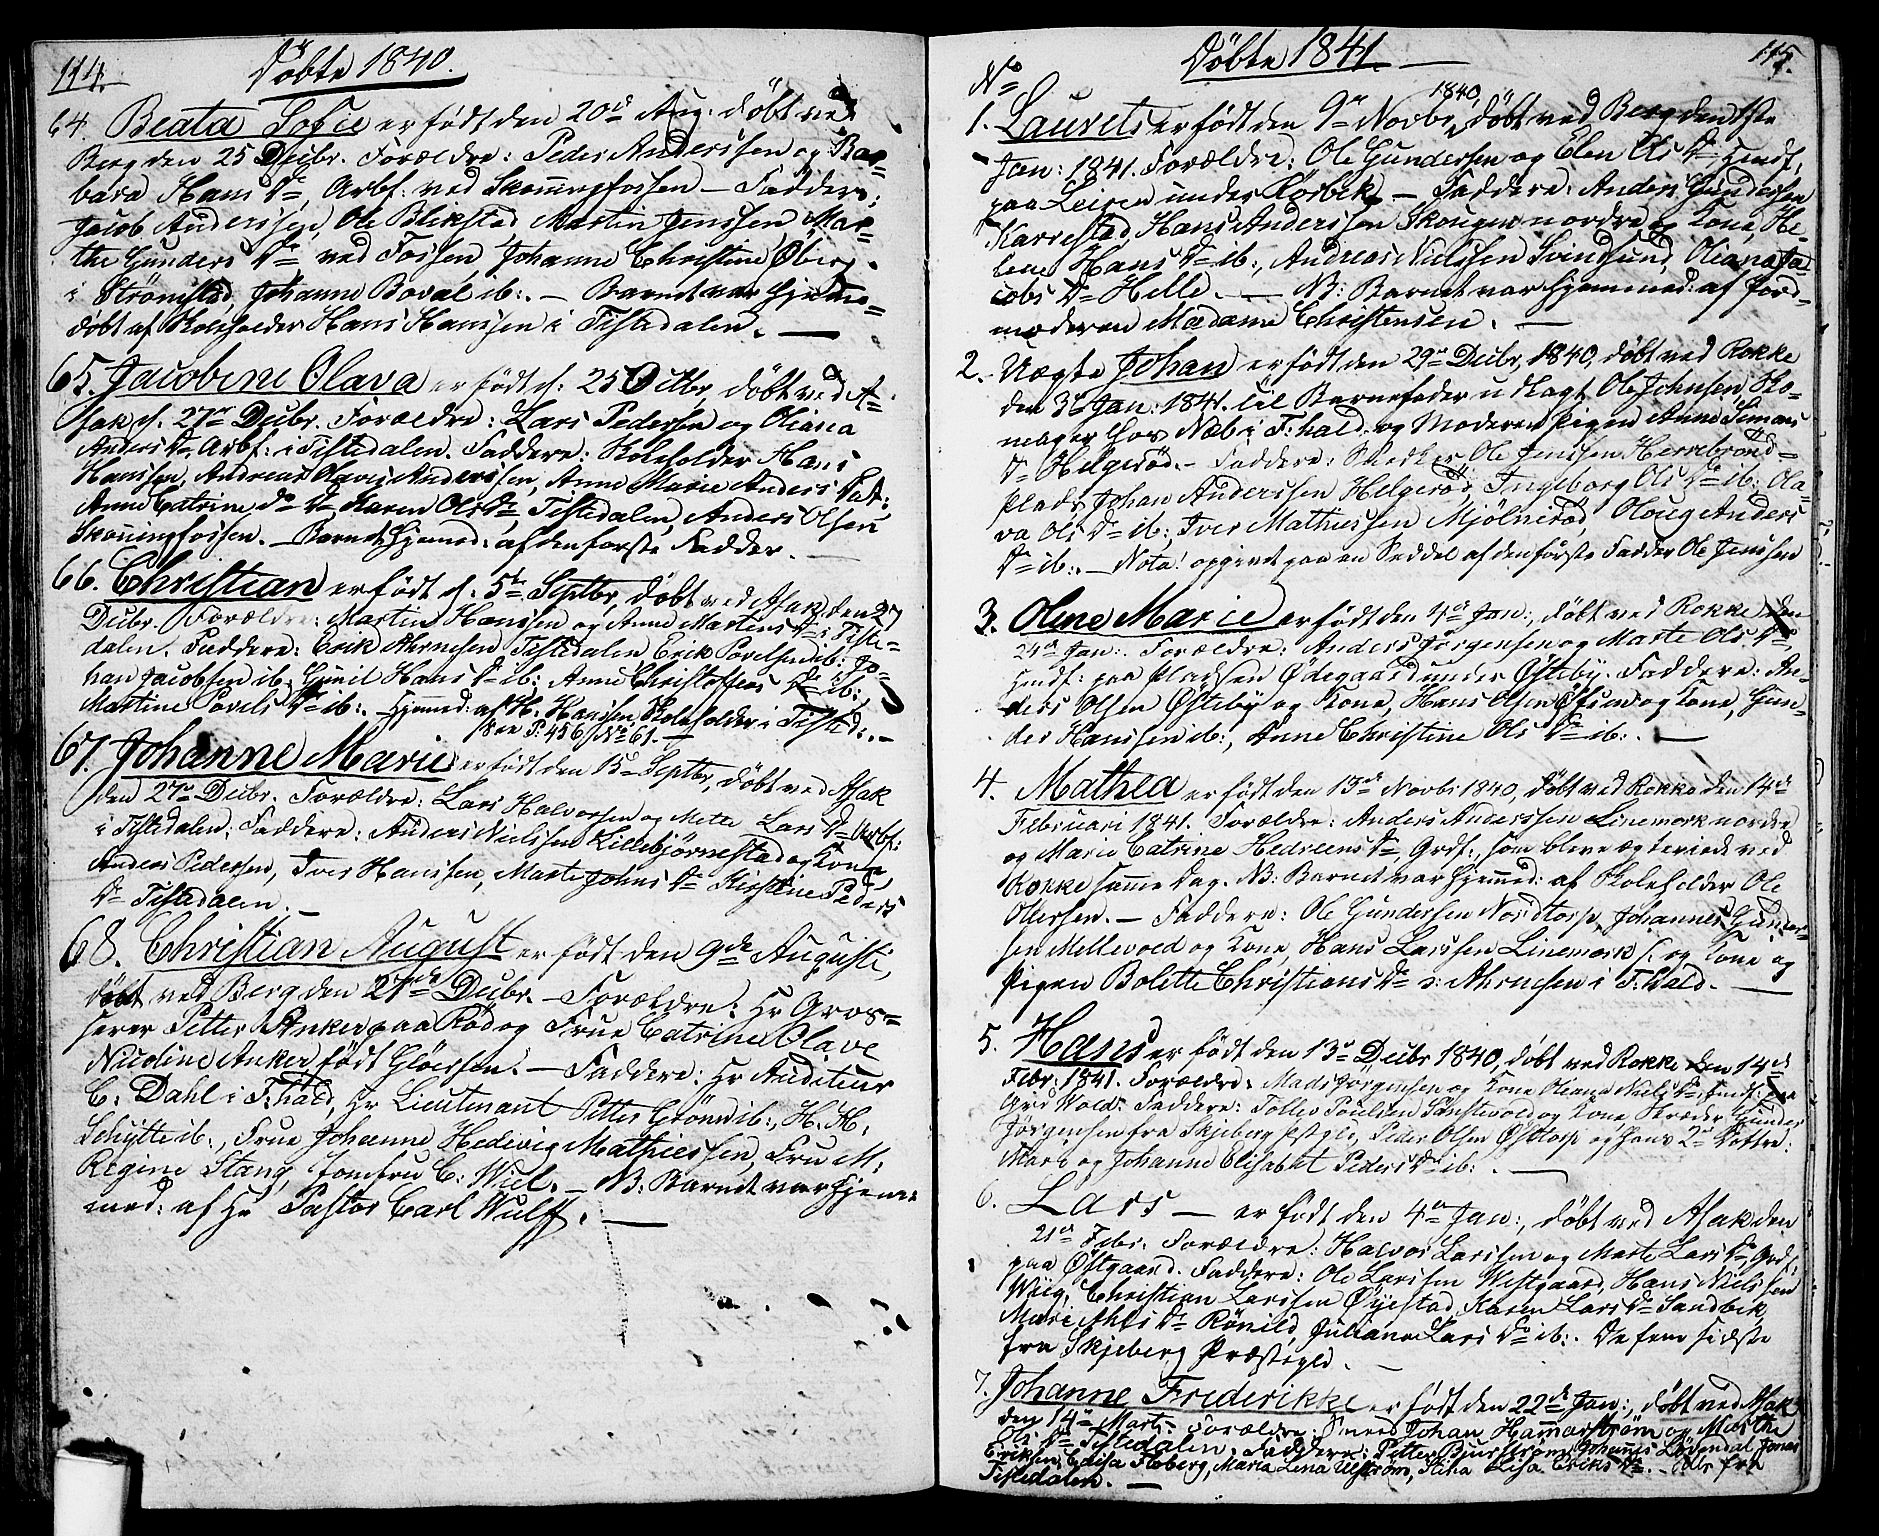 114.
Döbte 1840.
64. Beata Sofie er født den 20de Aug. döbt ved
Berg den 25 Decbr. Forældre: Peder Anderssen og Bar-
bara Hans Dr, Arbf. ved Skonningfossen — Faddere:
Jacob Anderssen, Ole Blikstad Martin Jenssen Mar-
the Gunders Dr ved Fossen Johanne Christine Öberg
i Strömstad, Johanne Boval ib:. — Barnet var hjemme-
döbt af Skoleholder Hans Hanssen i Tistedalen. —
65. Jacobine Olava er født d. 25 Octbr, döbt ved A-
sak d. 27de Decbr. Forældre: Lars Pedersen og Oliana
Anders Dr Arbf: i Tistedalen. Faddere: Skoleholder Hans
Hanssen, Andreas Olavs Anderssen, Anne Marie Anders Dat:
Anne Catrine do Dr Karen Ols Dr, Tistedalen, Anders Olsen
Skonningfossen. — Barnet hjemmed: af den første Fadder.
66. Christian er født d. 5te Septbr, döbt ved Asak den 27
Decbr. Forældre: Martin Hanssen og Anne Martens Dr i Tiste-
dalen. Faddere: Erik Ahrnesen Tistedalen Erik Povelsen ib: Jo-
han Jacobsen ib. Gunil Hans Dr ib:, Anne Christoffers Dr ib:,
Martine Povels Dr ib:. — Hjemmed: af H. Hanssen, Skoleholder i Tisted:. —
See P: 456. No 61. —
67. Johanne Marie er født den 15de Septbr, döbt ved Asak
den 27de Decbr. Forældre: Lars Halvorssen og Mette Lars Dr Arbf:
i Tistedalen; Faddere: Anders Nielssen Lillebjørnestad og Kone,
Anders Pedersen, Iver Hanssen, Marte Johns Dr Kirstine Peders
Dr Tistedalen. —
68. Christian August er født den 9de Augusti,
döbt ved Berg den 27de Decbr. — Forældre: Hr Gros-
serer Petter Anker paa Röd og Frue Catrine Olave
Nicoline Anker født Gløersen. — Faddere: Hr Auditeur
C: Dahl i F:hald, Hr Lieutenant Petter Grönn ib:, H. M.
Schytte ib:, Frue Johanne Hedevig Mathiessen, Fru M:
Regine Stang, Jomfru C: Wiel. — NB: Barnet var hjem-
med: af Hr Pastor Carl Wulff. —
115.
Döbte 1841. —
No
1. Laurets er født den 9de Novbr 1840, döbt ved Berg den 1ste
Jan: 1841. Forældre: Ole Gundersen og Elen Ols Dr Husf:
paa Leiren under Rørbek, — Faddere: Anders Gundersen
Karrestad, Hans Anderssen Skougen nordre og Kone, He-
lene Hans Dr ib:, Andreas Nielssen Svindsund, Oliana Ja-
cobs Dr Helle. — NB: Barnet var hjemmed: af Jord-
moderen Madame Christensen. —
2. Uægte Johan er født den 29de Decbr, 1840, döbt ved Rokke
den 3 Jan: 1841. Til Barnefader er Udlagt Ole Johnsen, Sko-
mager hos Næb i F:hald. og Moderen Pigen Anne Simons
Dr Helgerød. — Faddere: Snedker Ole Jenssen Herrebrönd-
Plads, Johan Anderssen Helgerød, Ingeborg Ols Dr ib: Ola-
va Ols Dr ib:, Iver Mathiessen Mjølneröd, Oloug Anders
Dr ib:. — Nota! opgivet paa en Seddel af den første Fadder Ole Jenssen
3. Olene Marie er født den 4de Jan:, döbt ved Rokke den
24de Jan:. Forældre: Anders Jörgensen og Marte Ols Dr,
Husf: paa Pladsen Ödegaard under Østeby. Faddere: An-
ders Olsen Østeby og Kone, Hans Olsen og Kone, Gun-
der Hanssen ib:, Anne Christine Ols Dr ib:. —
4. Mathea er født den 13de Novbr 1840, döbt ved Rokke den 14de
Februari 1841. Forældre: Anders Anderssen Linemork nordre
og Marie Catrine Hedreens Dr, Grdf:, som bleve ægteviede ved
Rokke samme Dag. NB: Barnet var hjemmed: af Skoleholder Ole
Ollersen. — Faddere: Ole Gundersen Nordtorp, Johannes Gunder-
sen Mellevold og Kone, Hans Larssen Linemork s. og Kone og
Pigen Bolette Christians Dr s: Ahrnesen i F:hald. —
5. Hans er født den 13de Decbr 1840, döbt ved Rokke den 14de
Febr: 1841. Forældre: Mads Jørgensen og Kone Oliana Niels Dr: Husf: paa
Grid Wold: Faddere: Tollev Poulsen Sanstevold og Kone, Skræder Gunder
Jørgensen fra Skjeberg Pstgld, Peder Olsen Østtorp og hans 2de Döttre:
Mari og Johanne Elisabet Peders Dr ib:. —
6. Lars — er født den 4de Jan:, döbt ved Asak den
21de Febr. Forældre: Halvor Larssen og Marte Lars Dr, Grdf.
paa Østgaard. Faddere: Ole Larssen Westgaard, Hans Nielssen
Wiig, Christian Larssen Øyestad, Karen Lars Dr Sandbek,
Mari Ahles Dr Rönild, Juliana Lars Dr ib:. De fem sidste
fra Skjeberg Præstegld. —
7. Johanne Frederikke er født den 22de Jan:, döbt ved Asak
den 14de Marts. Forældre: Smed Johan Hammarström og Marthe
Ols Dr Tistedalen. Faddere: Petter Buurström, Johannes Lövendal, Jonas
Eriksen, Cajsa Floberg, Maria Lena Ulström, Stina Lisa Eriks Dr. — alle fra
Tistedalen. —